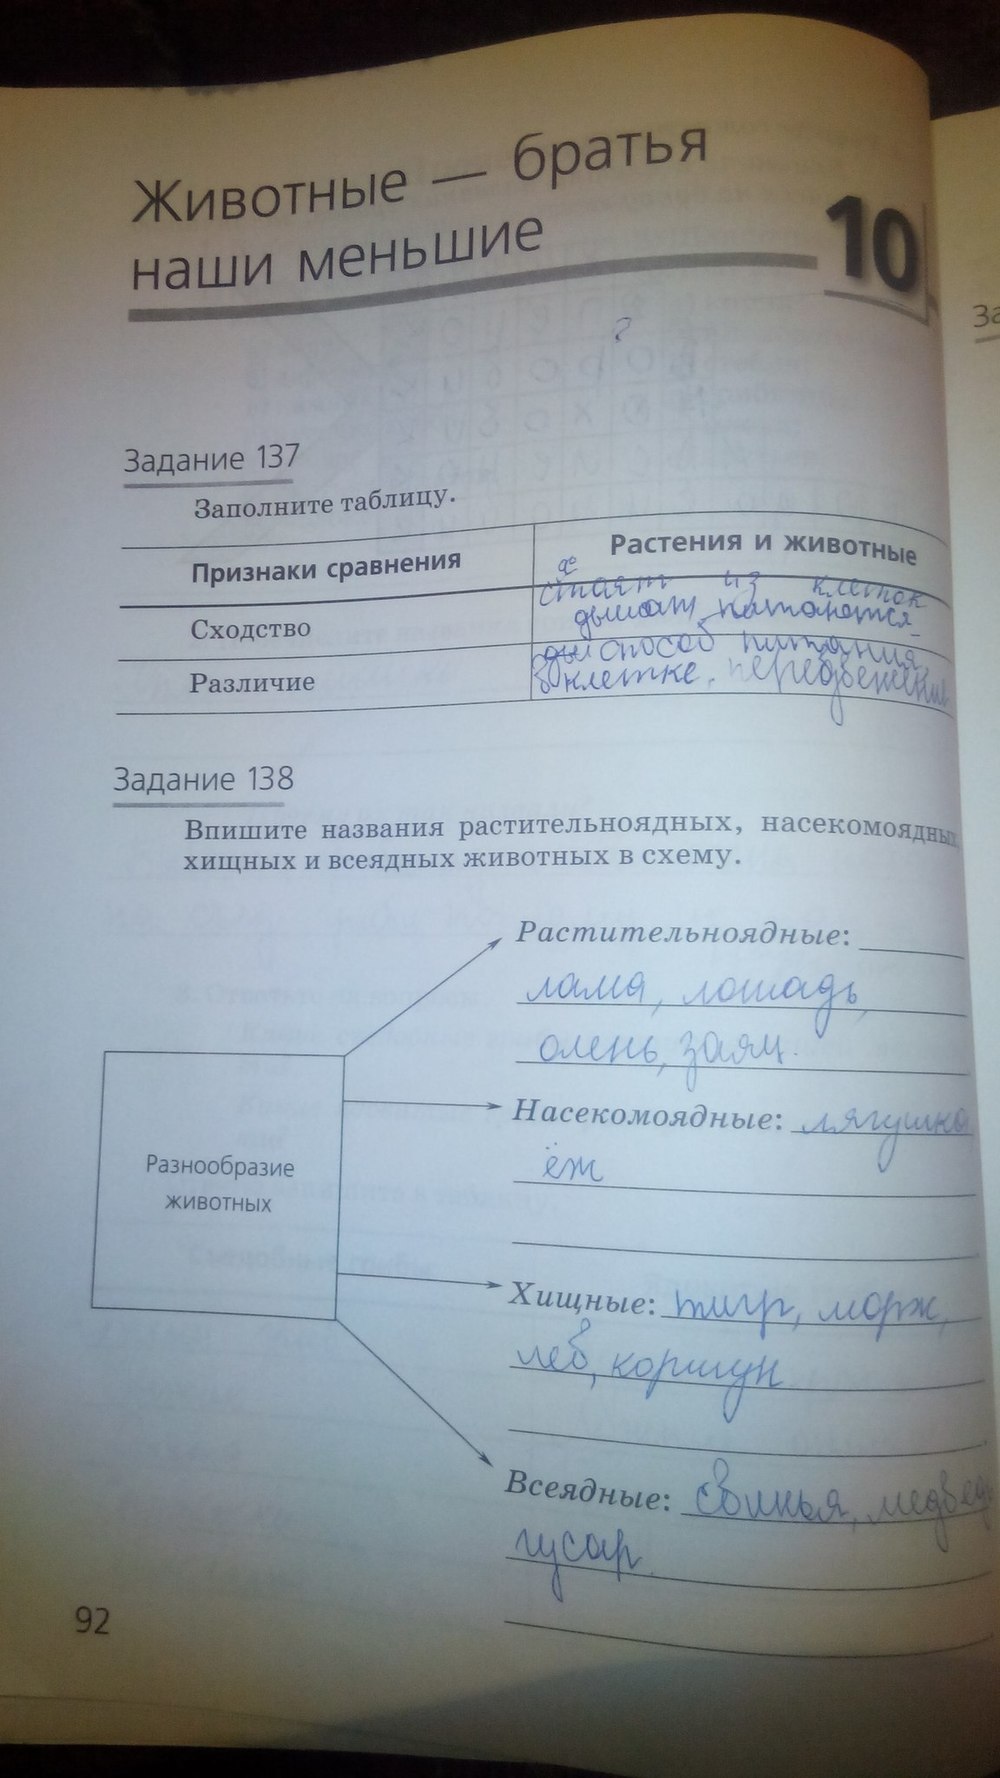 Животные — братья
наши меньшие
10
За
?
Задание 137
Заполните таблицу.
Признаки сравнения
Растения и животные
Сходство
стаят из клеток
дышат питаются
Различие
способ питания,
клетке. передвежения
Задание 138
Впишите названия растительноядных, насекомоядных,
хищных и всеядных животных в схему.
Разнообразие
животных
Растительноядные:
лама, лошадь,
олень, заяц.
Насекомоядные: лягушка
ёж
Хищные: тигр, морж,
лев, коршун
Всеядные: свинья, медведь
гусар.
92